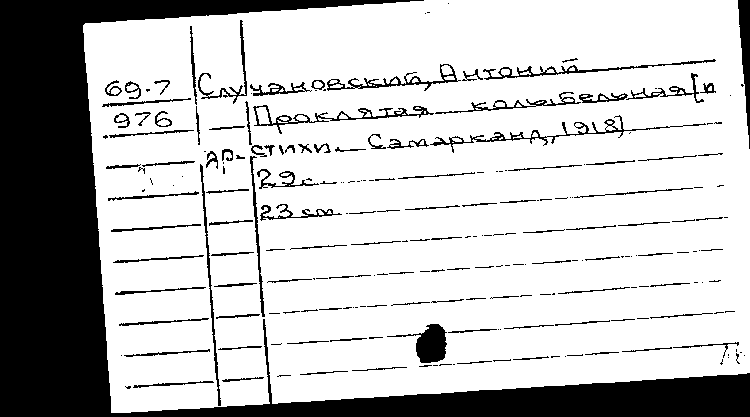 69-7 Случановский, Антоний
976 Проклятая колыбельная [и
др. стихи. Самарканд, 1918]
29 с.
23 cm